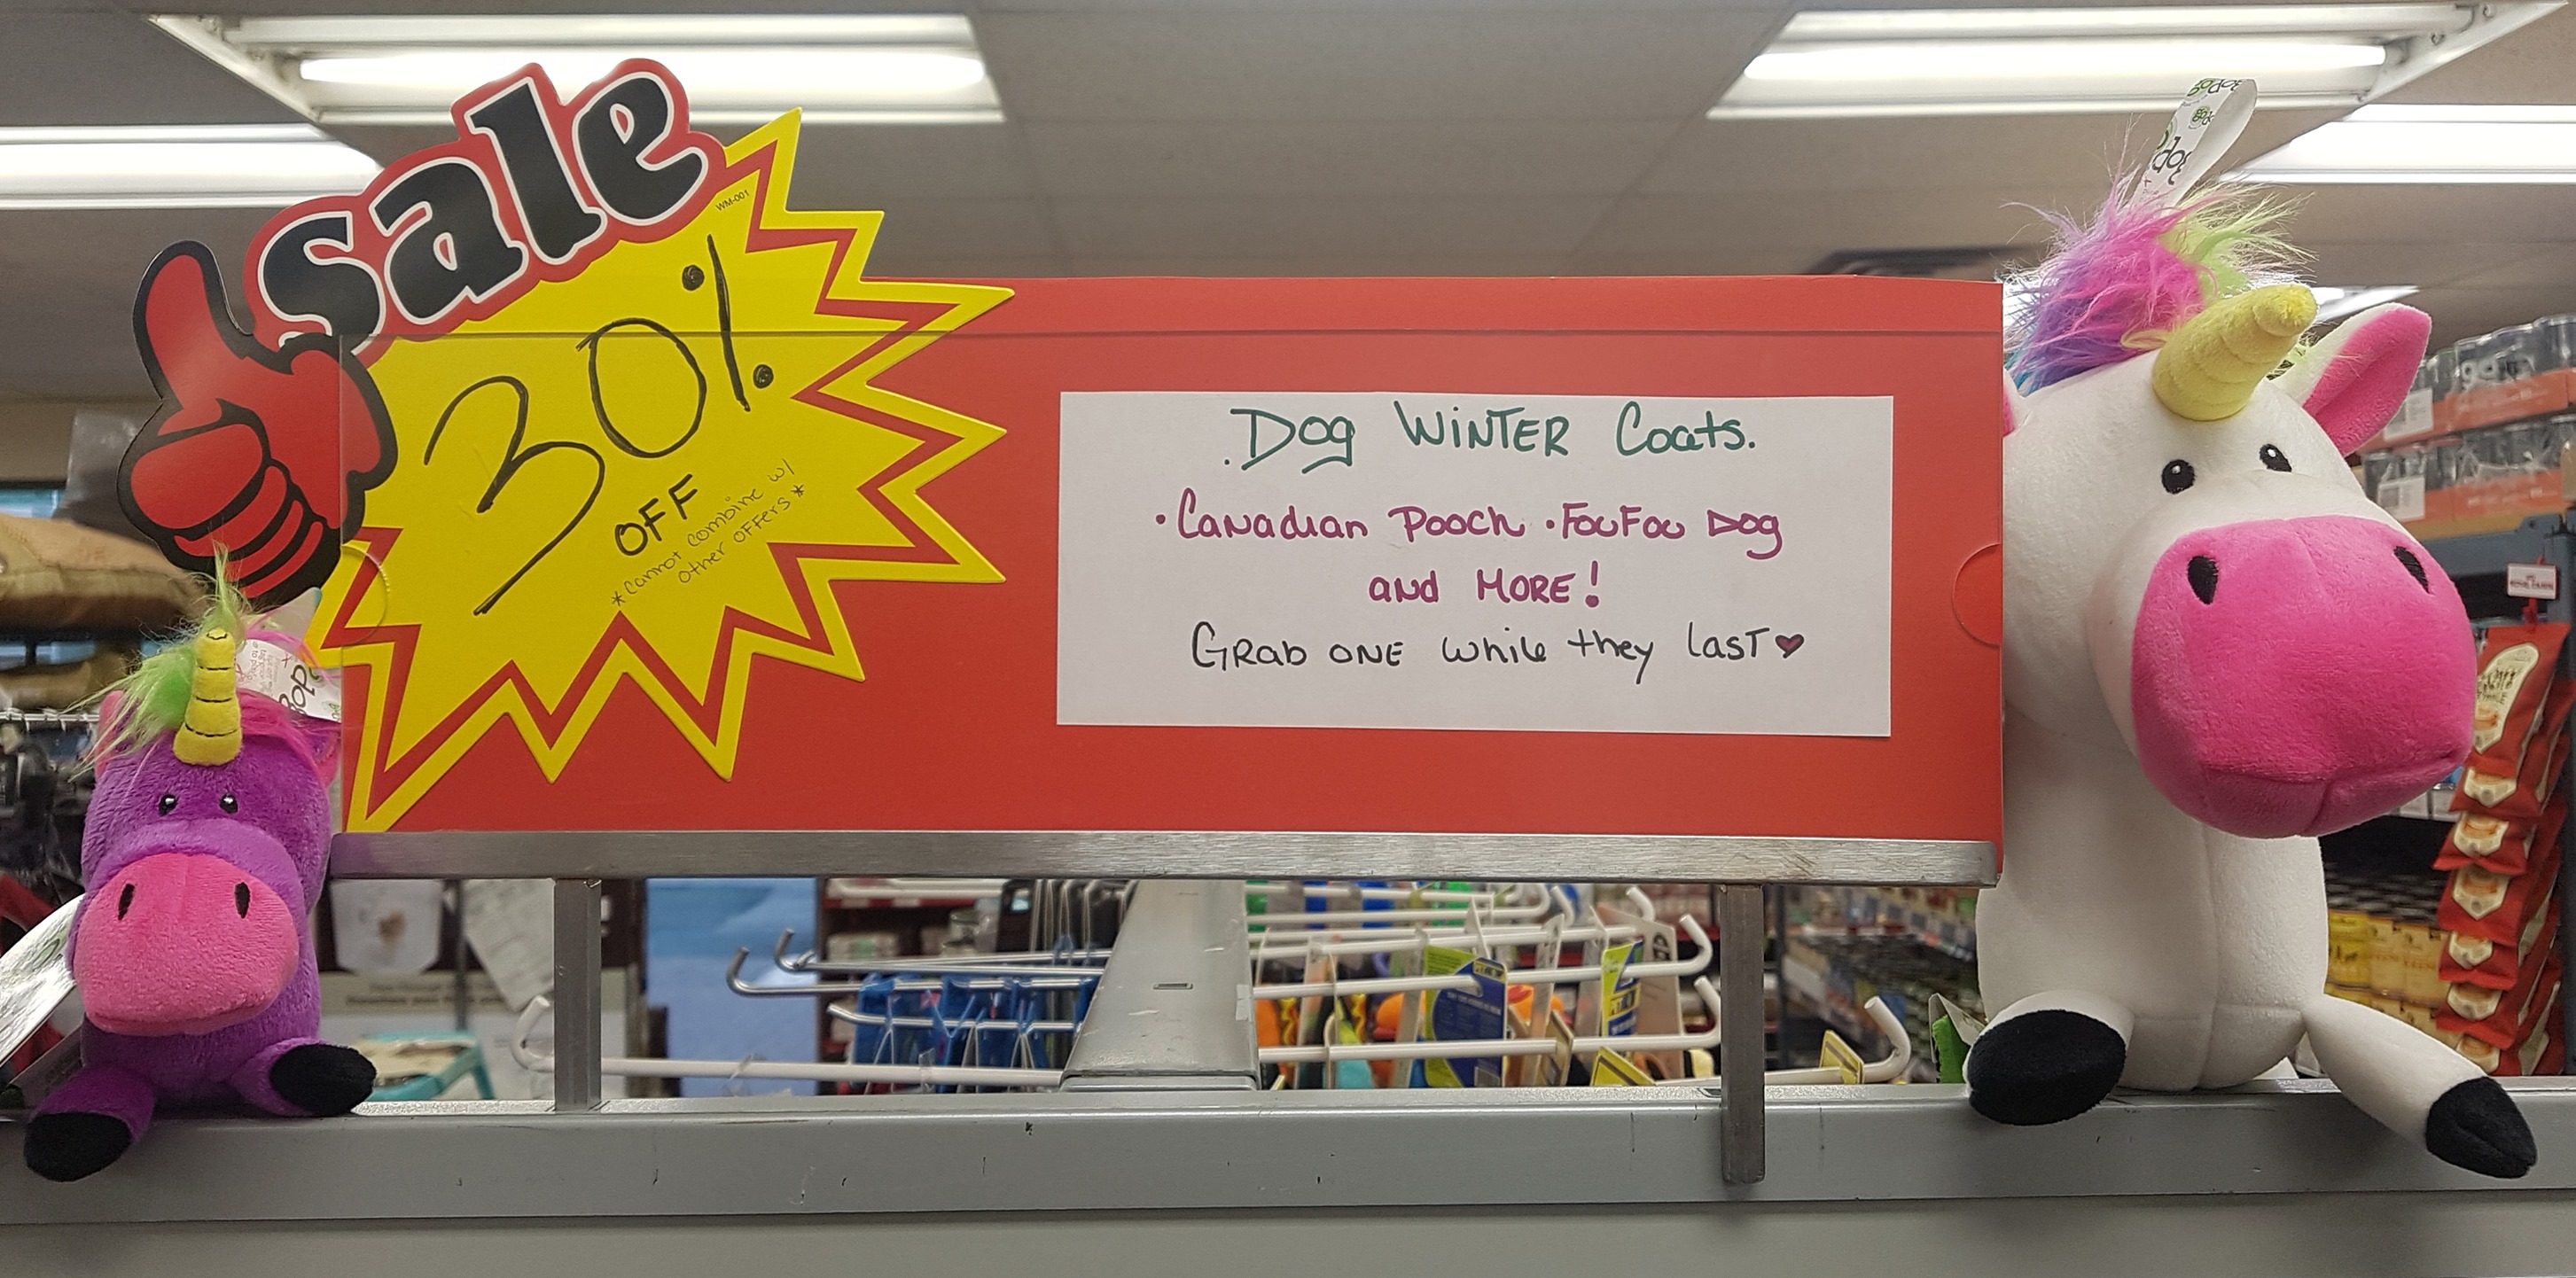 sale
WM-001
30%
OFF
*Cannot combine w/
other offers*
.Dog WiNTER Coats.
·Canadian Pooch ·FouFou Dog
and MORE!
Grab ONE while they last♥